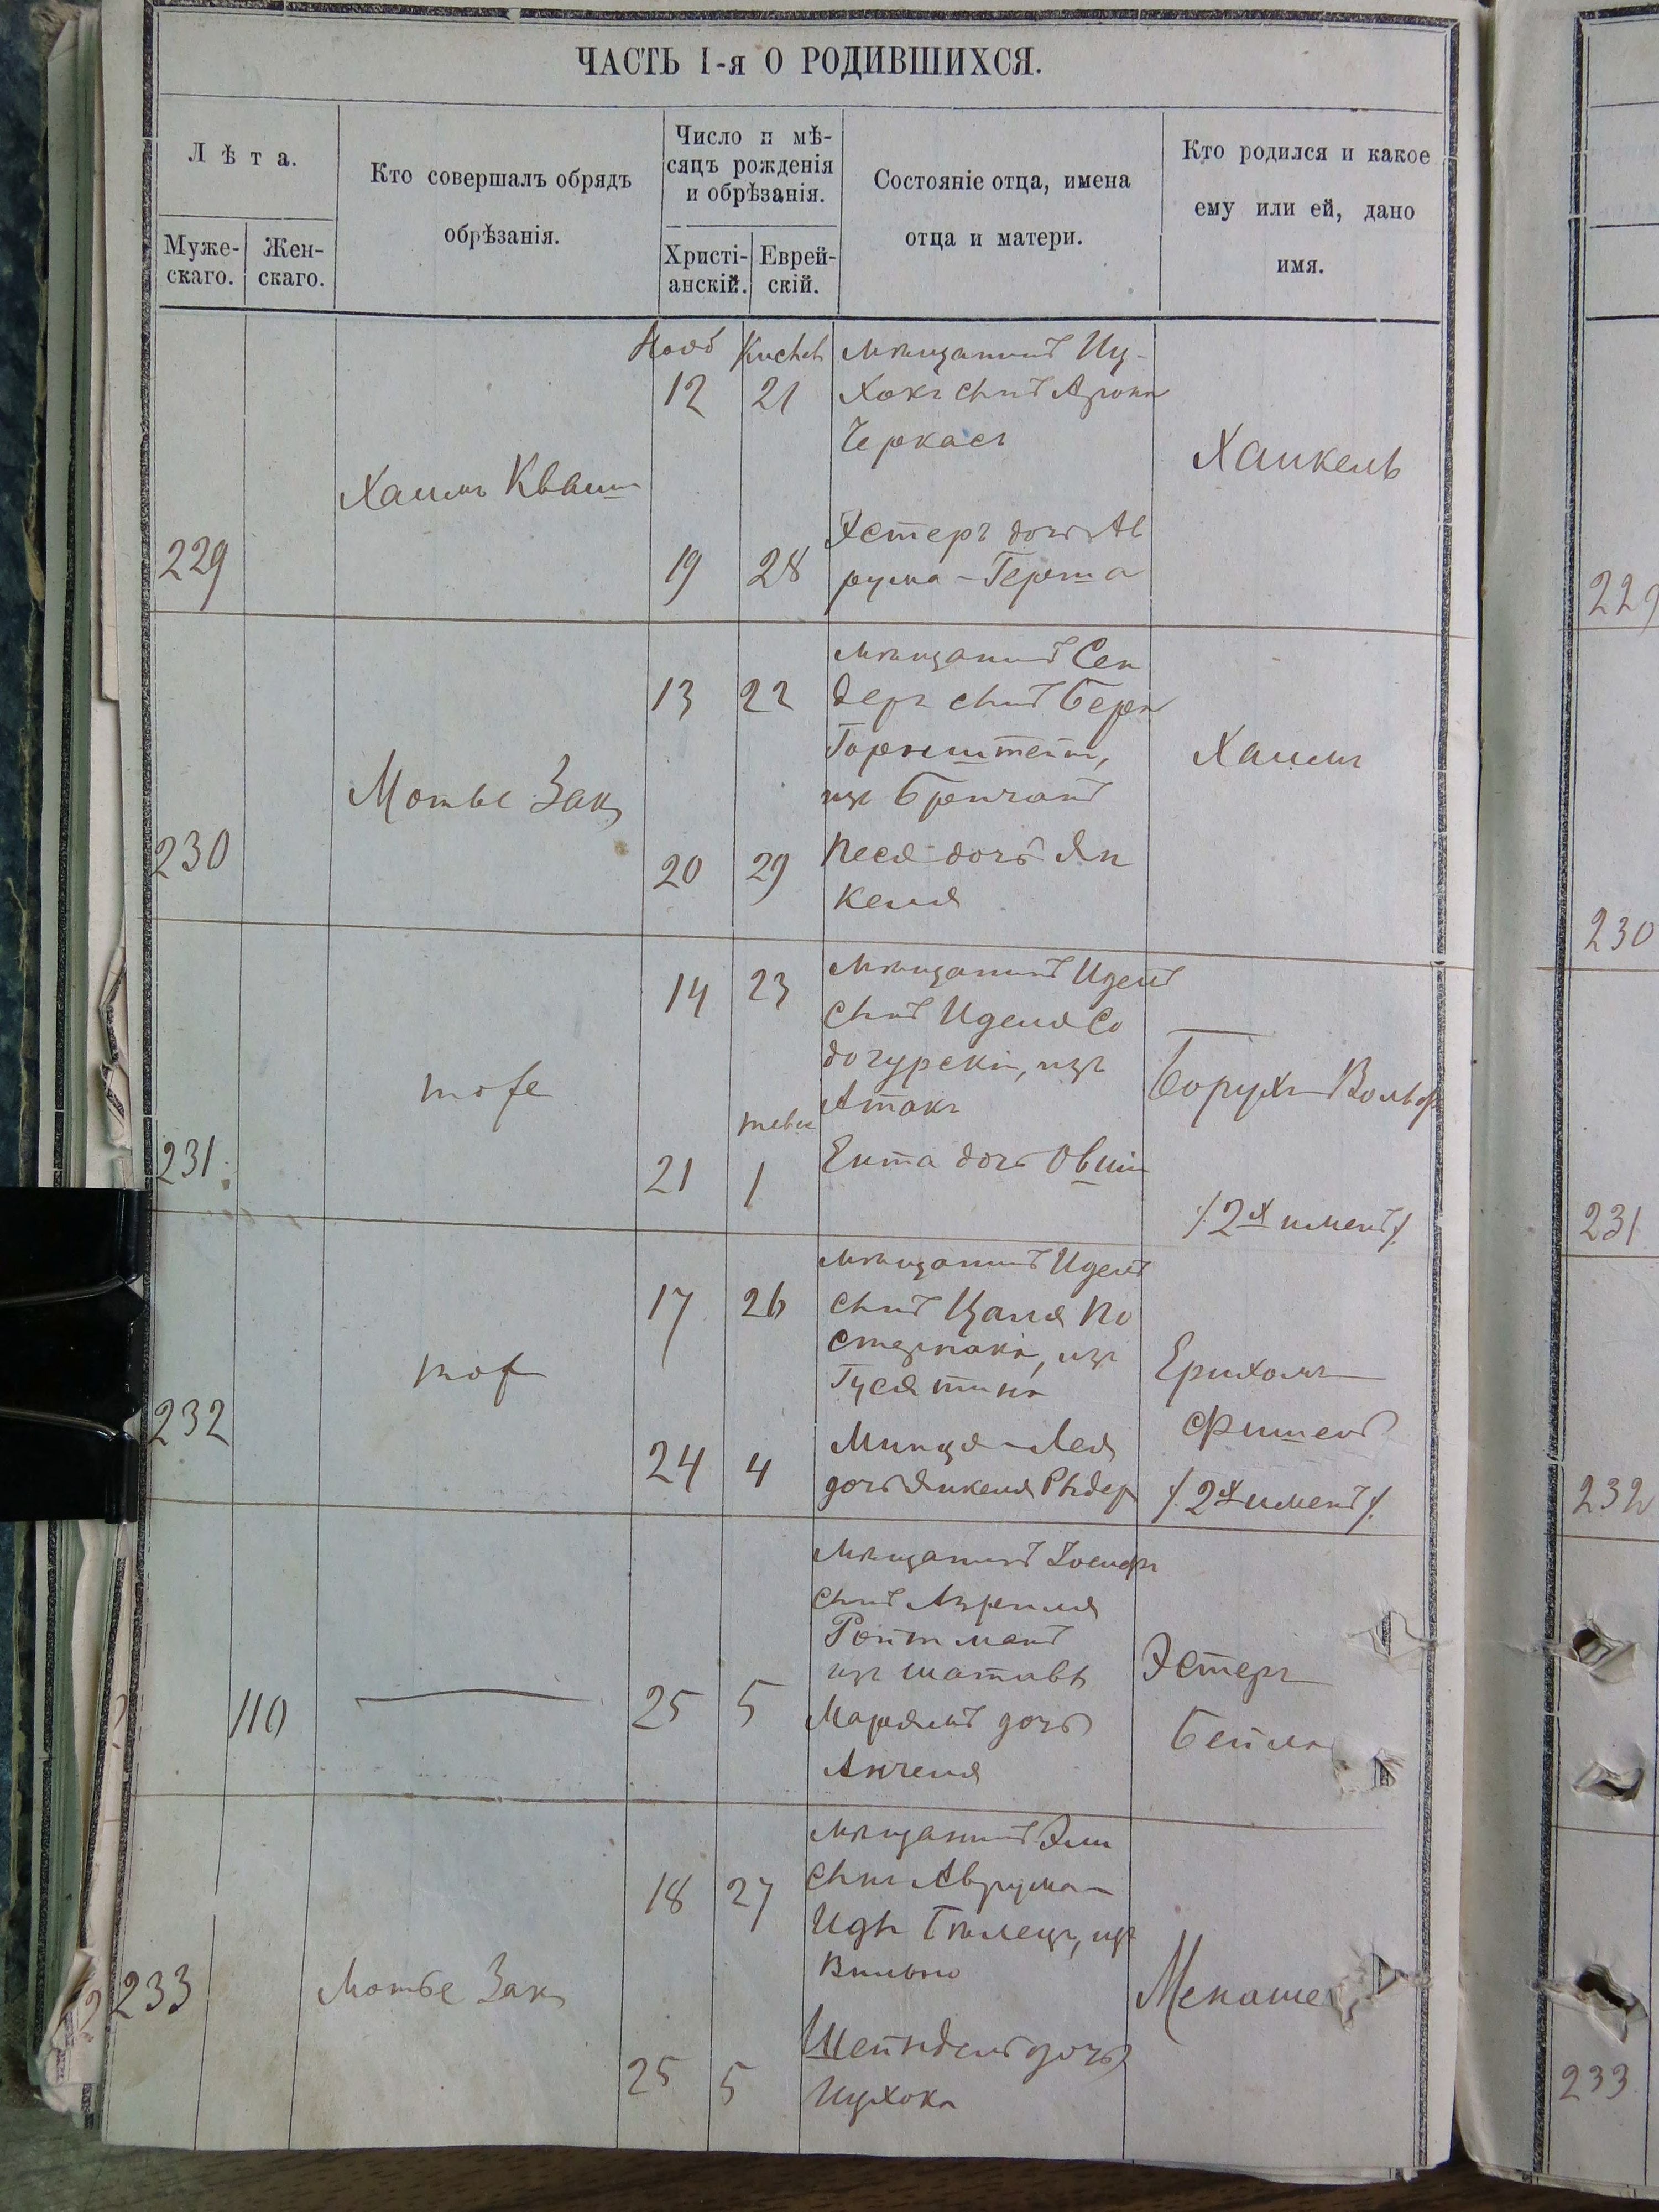 ЧАСТЬ I-я О РОДИВШИХСЯ.
Лѣта.
Муже-
скаго.
Жен-
скаго.
Кто совершалъ обрядъ
обрѣзанія.
Число и мѣ-
сяцъ рожденія
и обрѣзанія.
Христі-
анскій.
Еврей-
скій.
Состояніе отца, имена
отца и матери.
Кто родился и какое
ему или ей, дано
имя.
229
Хаимъ Кваш
Нояб
12
19
21
28
мѣщанинъ Иц-
хокъ сынъ Арона
Черкасъ
Эстеръ дочь Ав
рума-Герша
Хаикель
230
Мотье Закъ
13
20
22
29
мѣщанинъ Сен
деръ сынъ Бера
Горенштейнъ,
изъ Бричанъ
Песя дочь Ян
келя
Хаимъ
231
тоже
14
21
23
1
мѣщанинъ
сынъ
изъ
Атакъ
Ента дочь Овшіи
Борухъ-Вольф
/2хъ именъ/
232
тоже
17
24
26
4
мѣщанинъ
сынъ
изъ
Гусятина
Минця-Лея
дочь Янкеля
Ерихомъ
Фишель
/2хъ именъ/
110
25
5
мѣщанинъ Іосифъ
сынъ Азреиля
Ройтманъ
изъ
Марямъ дочь
Анчеля
Эстеръ
Бейла
233
Мотье Закъ
18
25
27
5
мѣщанинъ Эли
сынъ Аврума-
изъ
Вильно
Шейндель дочь
Ицхока
Менаше
229
230
231
232
233